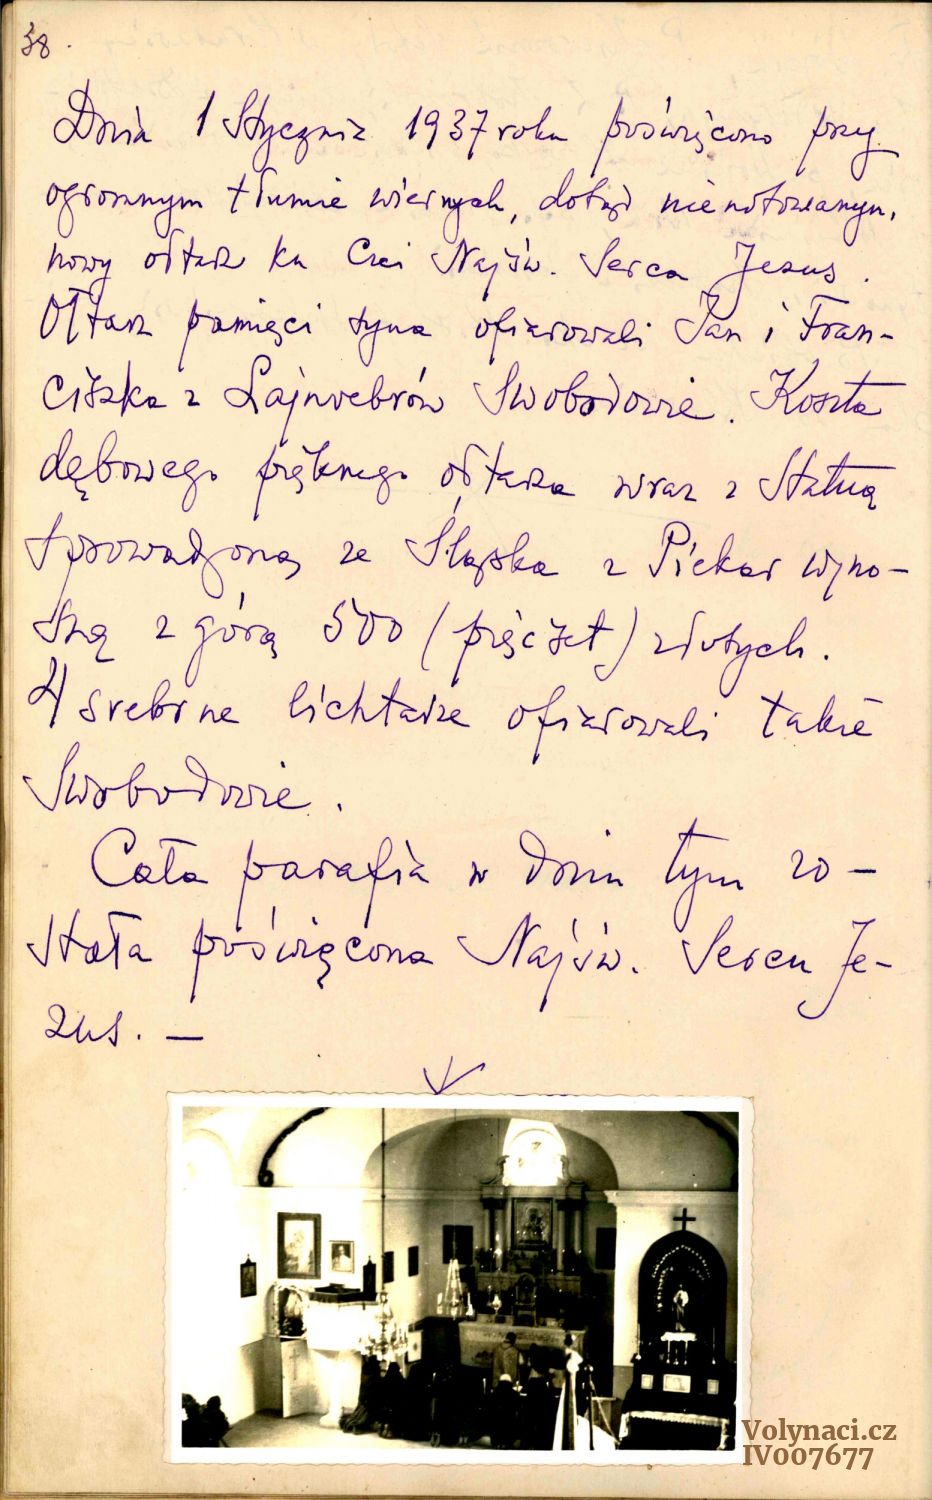 38.
Dnia 1 Stycznia 1937 roku poświęcono przy
ogromnym tłumie wiernych, dotąd nienotowanym,
nowy ołtarz ku Czci Najśw. Serca Jezus.
Ołtarz pamięci syna ofiarowali Jan i Fran-
ciszka z Lajnvebrów Swobodowie. Koszta
dębowego pięknego ołtarza wraz z Statuą
sprowadzoną ze Śląska z Piekar wyno-
szą z górą 500 (pięćset) złotych.
4 srebrne lichtarze ofiarowali także
Swobodowie.
Cała parafia w dniu tym zo-
stała poświęcona Najśw. Sercu Je-
zus. —
Volynaci.cz
IV007677